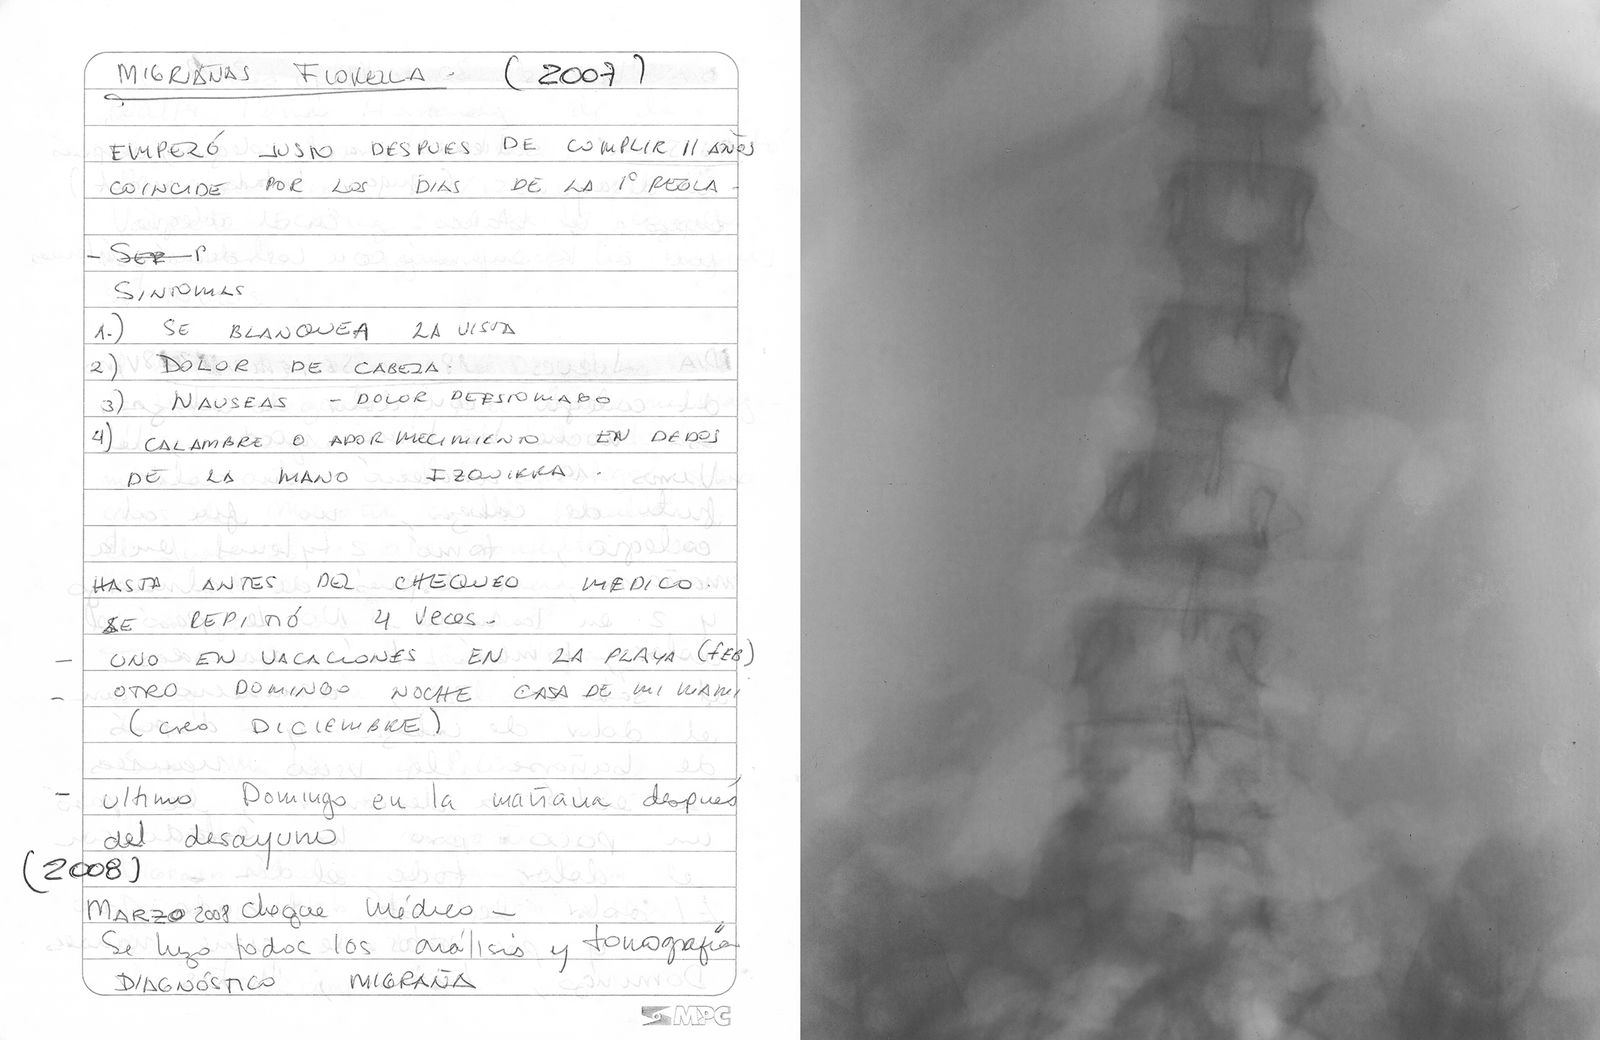 MIGRAÑAS FIORELLA. (2007)
EMPEZÓ JUSTO DESPUES DE CUMPLIR 11 AÑOS
COINCIDE POR LOS DIAS DE LA 1º REGLA -
- SER P
SINTOMAS
1.) SE BLANQUEA LA VISTA
2) DOLOR DE CABEZA.
3) NAUSEAS - DOLOR DE ESTOMAGO
4) CALAMBRE O ADORMECIMIENTO EN DEDOS
DE LA MANO IZQUIRRA.
HASTA ANTES DEL CHEQUEO MEDICO.
SE REPITIÓ 4 Veces.-
- UNO EN VACACIONES EN LA PLAYA (FEB)
- OTRO DOMINGO NOCHE CASA DE MI MAMI
(creo DICIEMBRE)
- ultimo Domingo en la mañana después
del desayuno
(2008)
MARZO 2008 Cheque Médico -
Se hizo todos los análisis y tomografía
DIAGNÓSTICO MIGRAÑA
MPC